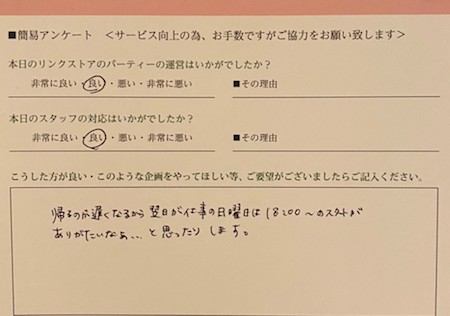 ■簡易アンケート <サービス向上の為、お手数ですがご協力をお願い致します>
本日のリンクストアのパーティーの運営はいかがでしたか?
非常に良い・良い・悪い・非常に悪い ■その理由
本日のスタッフの対応はいかがでしたか?
非常に良い・良い・悪い・非常に悪い ■その理由
こうした方が良い・このような企画をやってほしい等、ご要望がございましたらご記入ください。
帰るのが遅くなるから翌日が仕事の日曜日は18:00〜のスタートが
ありがたいなぁ...と思ったりします。